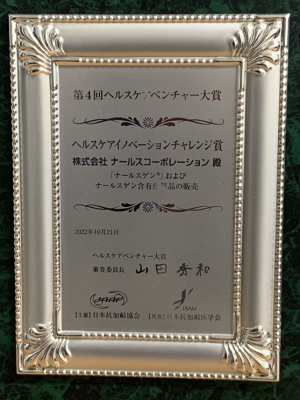 第4回ヘルスケアベンチャー大賞
ヘルスケアイノベーションチャレンジ賞
株式会社 ナールスコーポレーション 殿
「ナールスゲン®」および
ナールスゲン含有 品の販売
2022年10月21日
ヘルスケアベンチャー大賞
審査委員長 山田秀和
JAAF
JAAM
【主催】日本抗加齢協会 【共催】日本抗加齢医学会